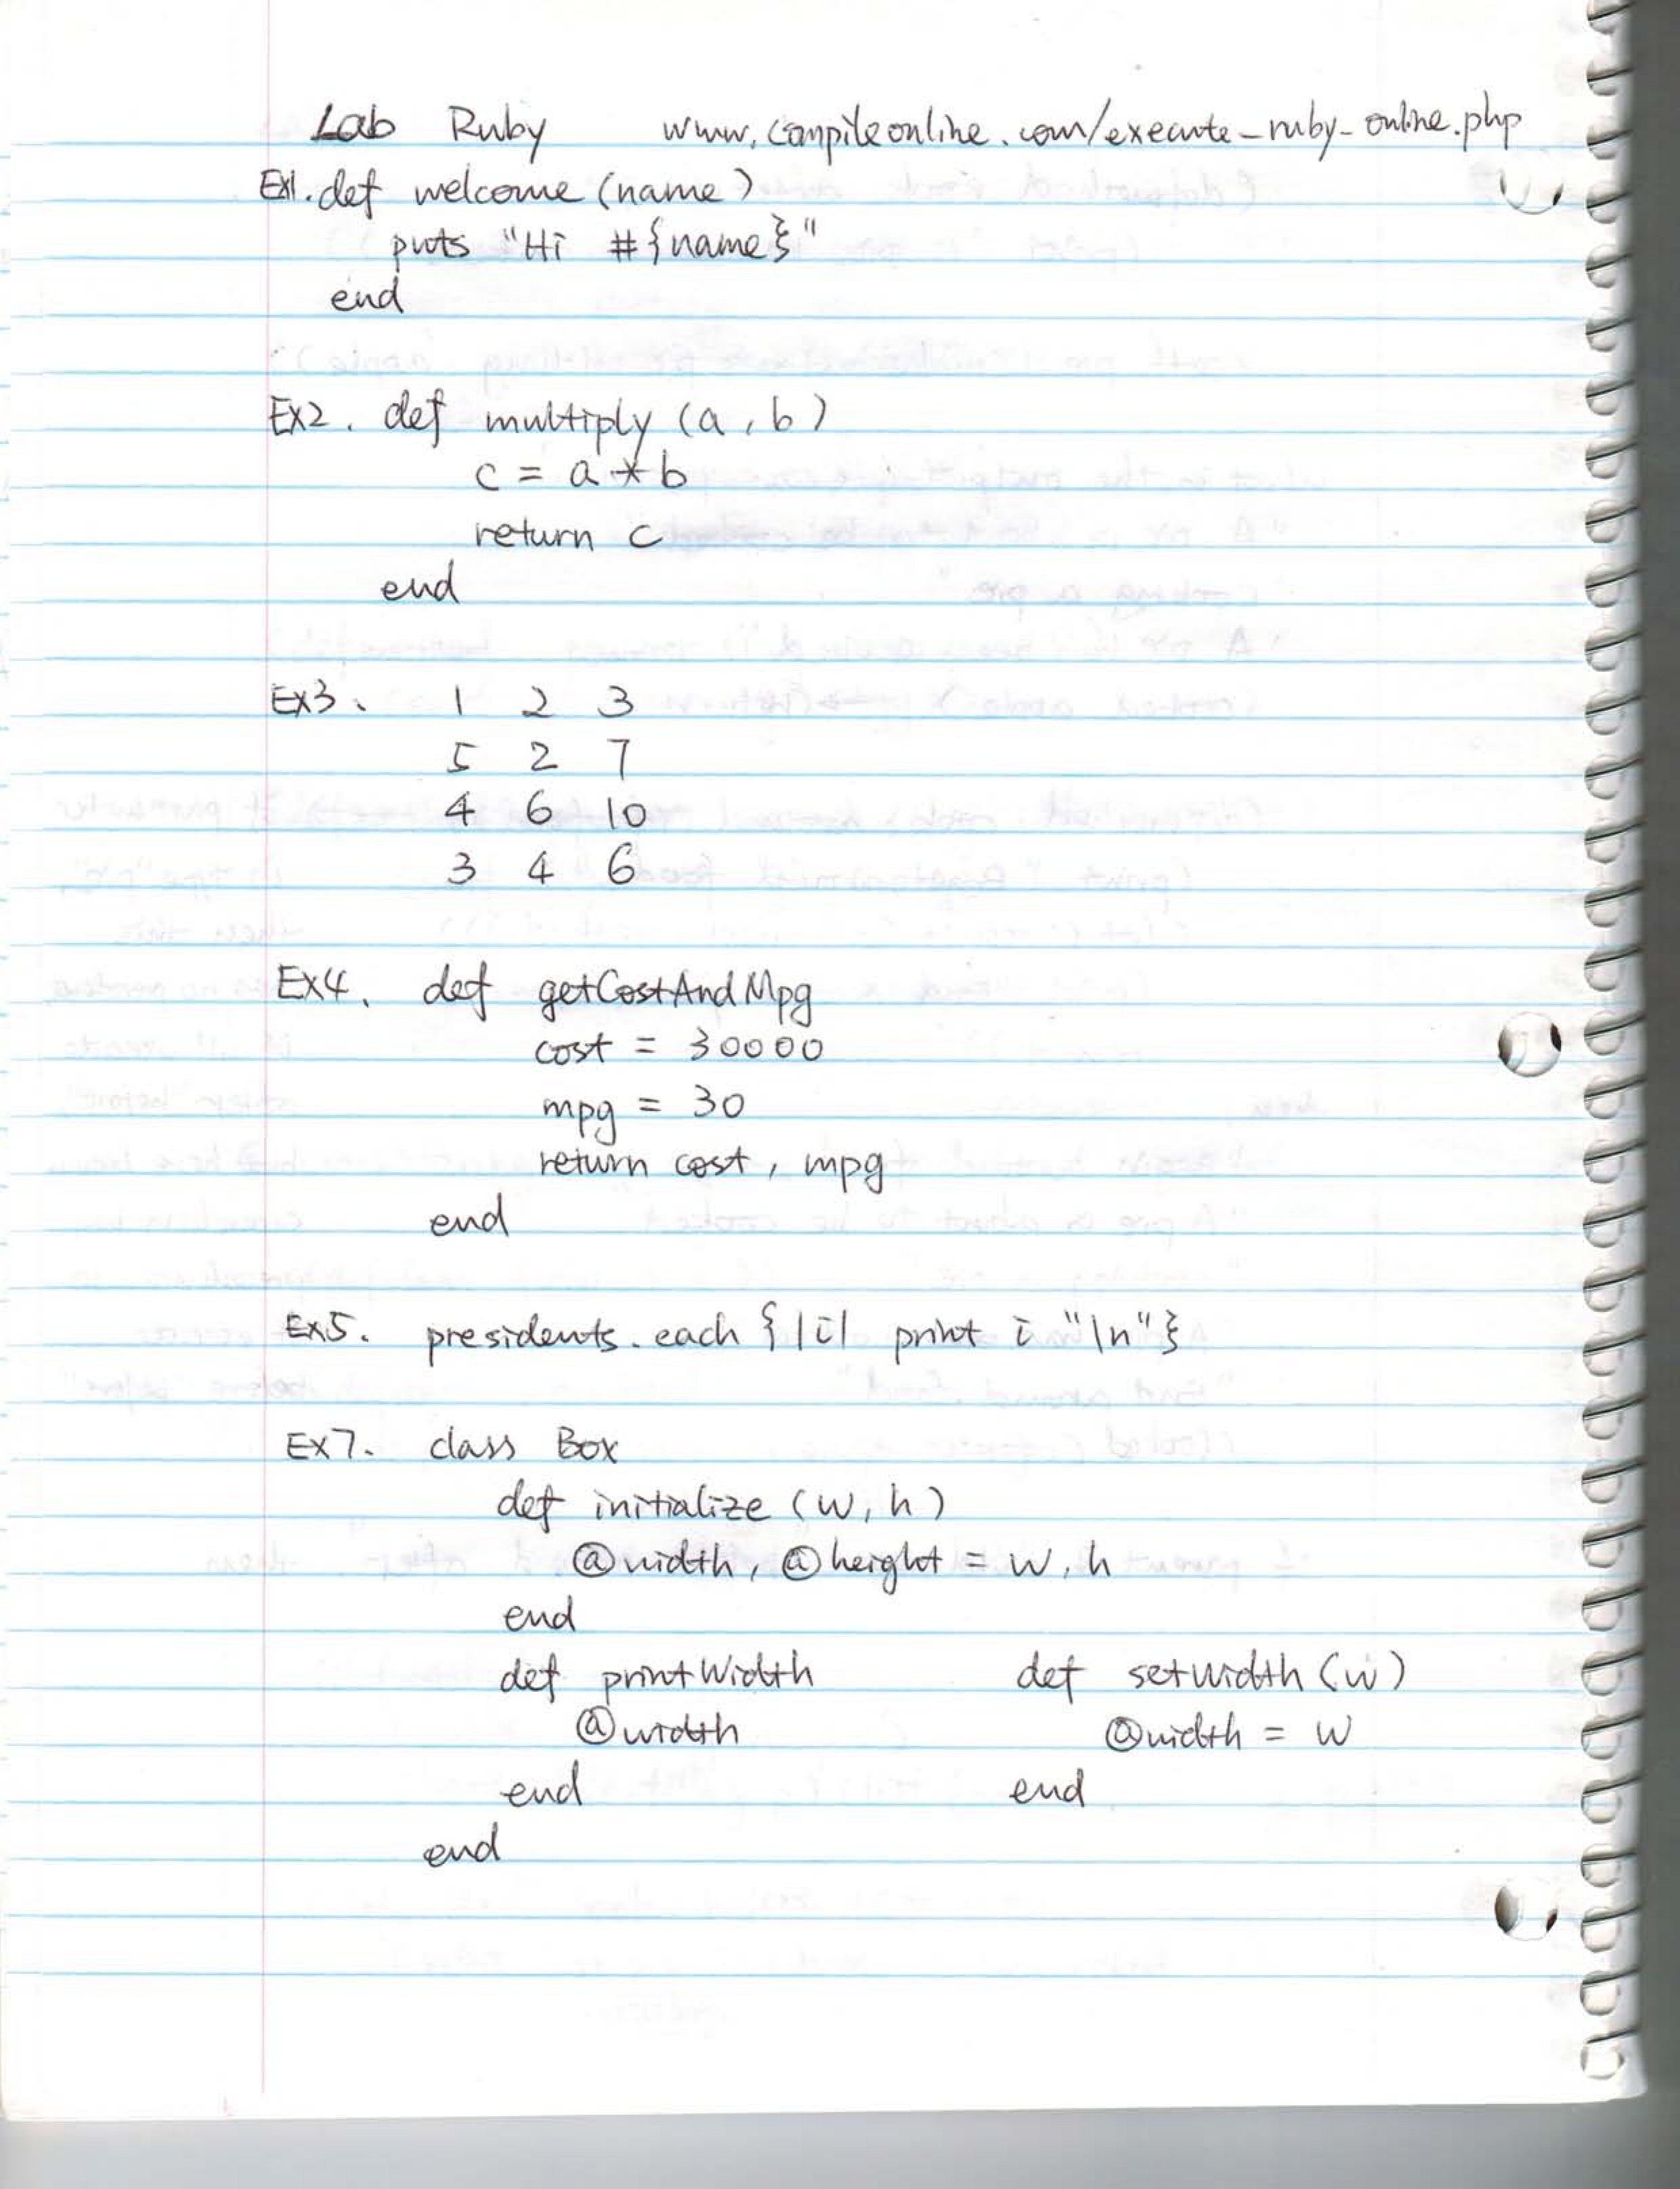 Lab Ruby www.compileonline.com/execute-ruby-online.php
Ex1. def welcome (name)
puts "Hi #{name}"
end
Ex2. def multiply (a, b)
c = a * b
return c
end
Ex3. 1 2 3
5 2 7
4 6 10
3 4 6
Ex4. def getCostAndMpg
cost = 30000
mpg = 30
return cost, mpg
end
Ex5. presidents.each {|i| print i "\n"}
Ex7. class Box
def initialize (w, h)
@width, @height = w, h
end
def printWidth def setwidth (w)
@width @width = w
end end
end